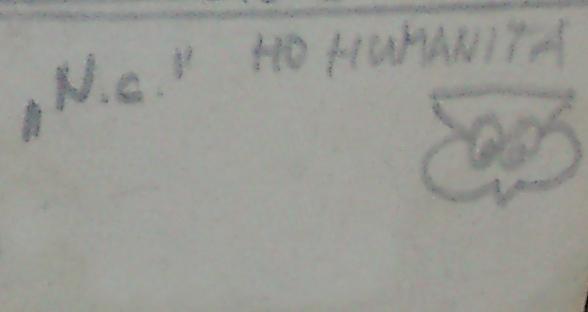 „N.c."  HO HUMANITA